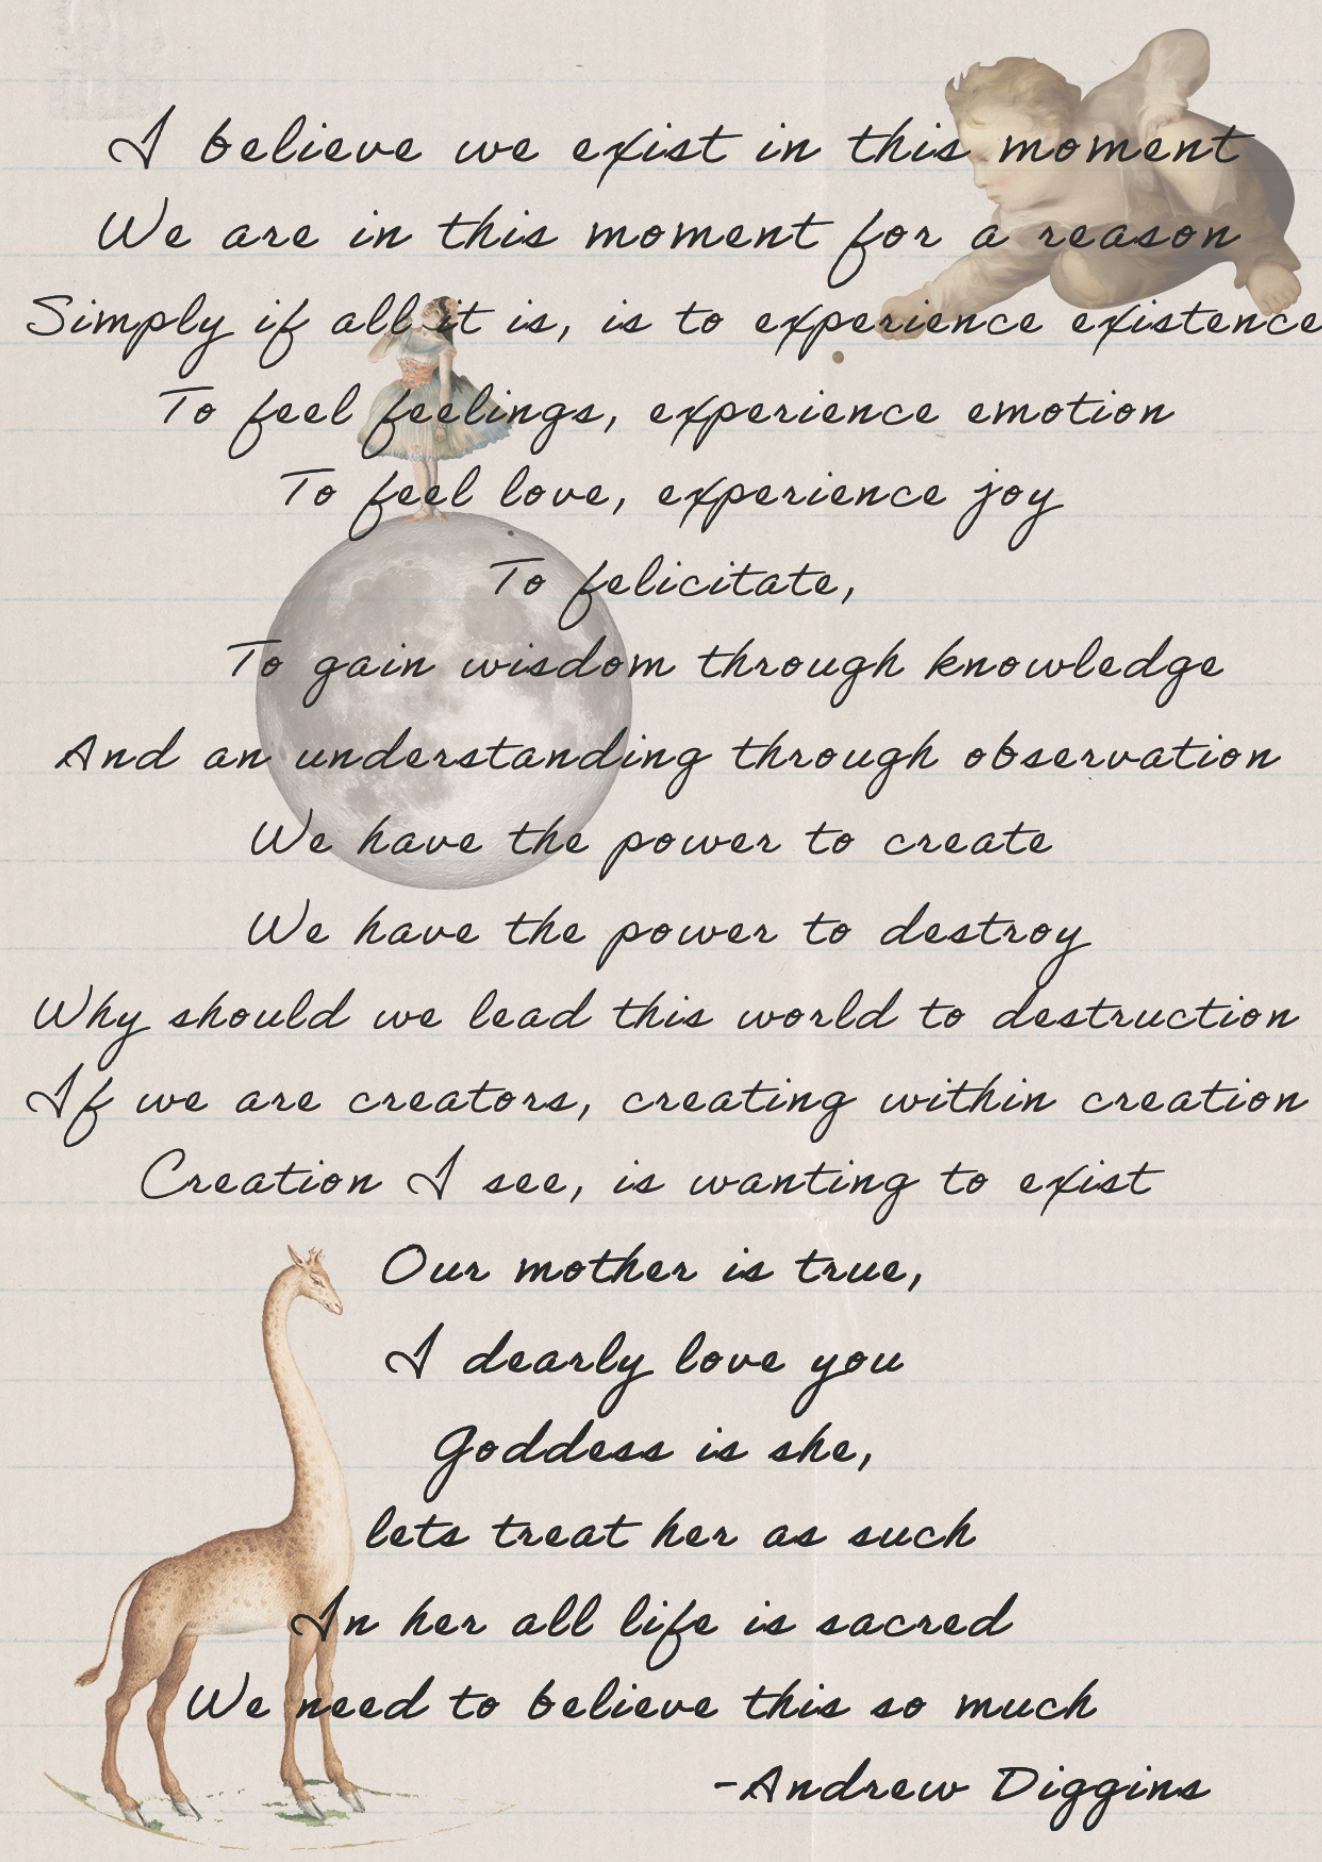 I believe we exist in this moment
We are in this moment for a reason
Simply if all it is, is to experience existence
To feel feelings, experience emotion
To feel love, experience joy
To felicitate,
To gain wisdom through knowledge
And an understanding through observation
We have the power to create
We have the power to destroy
Why should we lead this world to destruction
If we are creators, creating within creation
Creation I see, is wanting to exist
Our mother is true,
I dearly love you
Goddess is she,
lets treat her as such
In her all life is sacred
We need to believe this so much
-Andrew Diggins